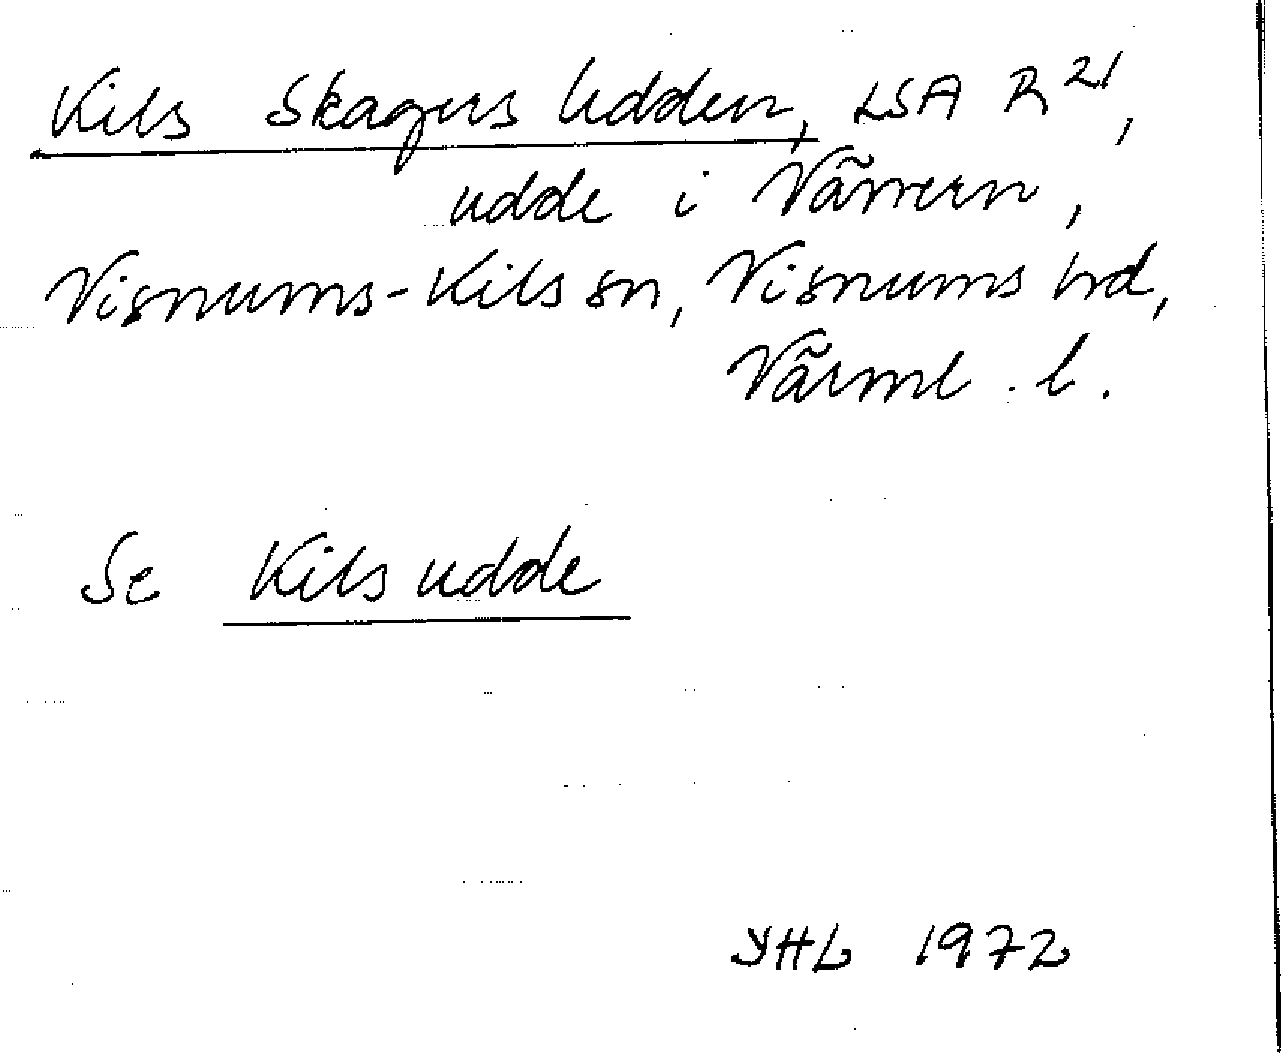 Kils Skagers Udden, LSA R21,
udde i Vänern,
Visnums-Kils sn, Visnums hd,
Värml. l.
Se Kils udde
YHL 1972